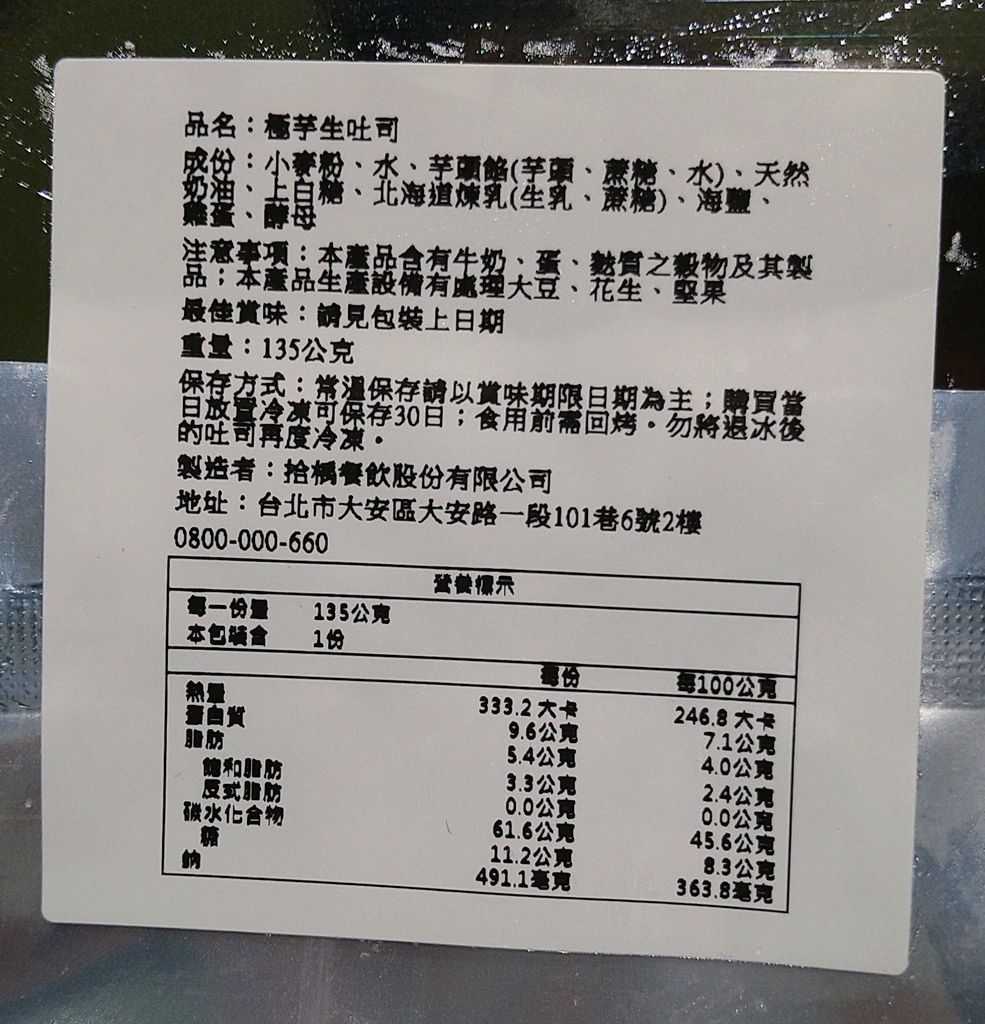 品名：極芋生吐司
成份：小麥粉、水、芋頭餡(芋頭、蔗糖、水)、天然
奶油、上白糖、北海道煉乳(生乳、蔗糖)、海鹽、
雞蛋、酵母
注意事項：本產品含有牛奶、蛋、麩質之穀物及其製
品；本產品生產設備有處理大豆、花生、堅果
最佳賞味：請見包裝上日期
重量：135公克
保存方式：常溫保存請以賞味期限日期為主；購買當
日放置冷凍可保存30日；食用前需回烤。勿將退冰後
的吐司再度冷凍。
製造者：拾橘餐飲股份有限公司
地址：台北市大安區大安路一段101巷6號2樓
0800-000-660
營養標示
每一份量 135公克
本包裝含 1份
每份 每100公克
熱量 333.2 大卡 246.8 大卡
蛋白質 9.6公克 7.1公克
脂肪 5.4公克 4.0公克
飽和脂肪 3.3公克 2.4公克
反式脂肪 0.0公克 0.0公克
碳水化合物 61.6公克 45.6公克
糖 11.2公克 8.3公克
鈉 491.1毫克 363.8毫克